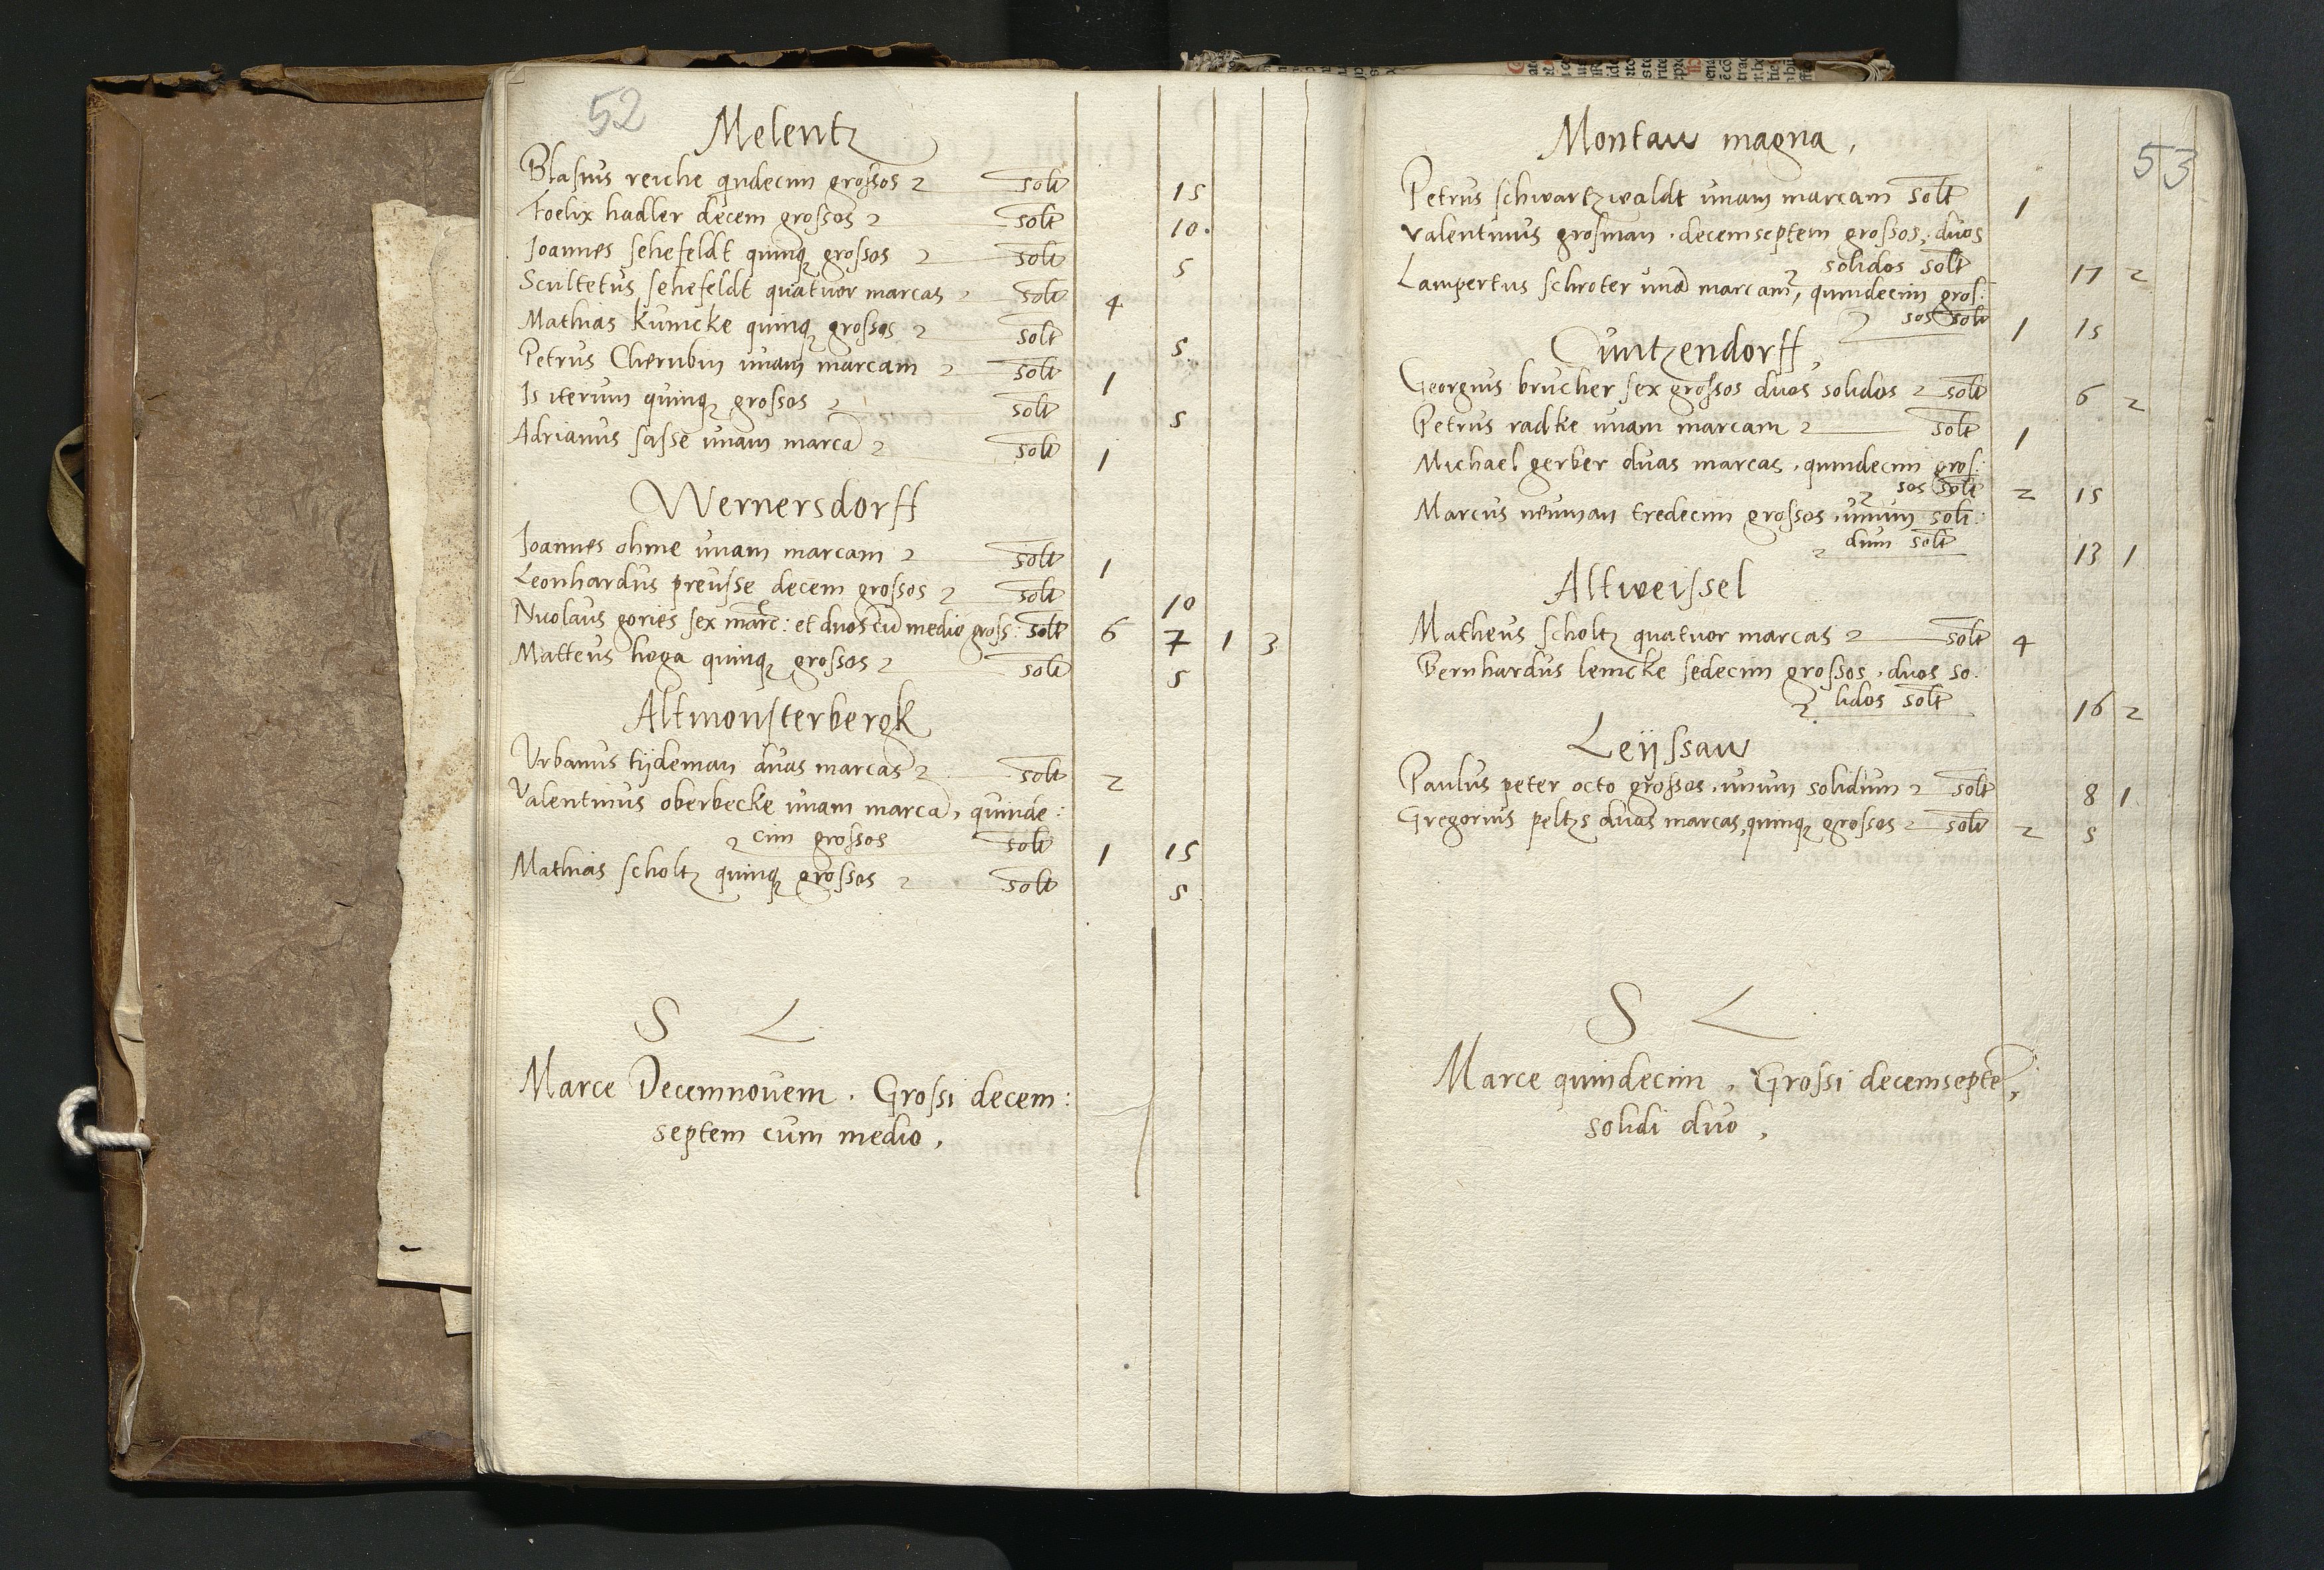 52
Melentz
Blasius reiche quindecim grossos solt 15
Foelix hadler decem grossos solt 10.
Joannes sehefeldt quinq grossos solt 5
Scultetus sehefeldt quatuor marcas solt 4
Mathias kunicke quinq grossos solt 5
Petrus Cherubin unam marcam solt 1
Is iterum quinq grossos solt 5
Adrianus sasse unam marcā solt 1
Wernersdorff
Joannes ohme unam marcam solt 1
Leonhardus preusse decem grossos solt 10
Nicolaus gories sex marc: et duos cū medio gross: solt 6 7 1 3
Matteus hoga quinq grossos solt 5
Altmonsterbergk
Urbanus tijdeman duas marcas solt 2
Valentinus oberbecke unam marcā, quinde:
cim grossos solt 1 15
Mathias scholtz quinq grossos solt 5
S L
Marce Decemnovem. Grossi decem:
septem cum medio,
53
Montaw magna,
Petrus schwartzwaldt unam marcam solt 1
Valentinus grosman. decemseptem grossos, duos
solidos solt 17 2
Lampertus schroter unā marcam, quindecim gros:
sos solt 1 15
Cuntzendorff,
Georgius brucher sex grossos duos solidos solt 6 2
Petrus radke unam marcam solt 1
Michael gerber duas marcas, quindecim gros:
sos solt 2 15
Marcus neuman tredecim grossos, unum soli:
dum solt 13 1
Altweissel
Matheus scholtz quatuor marcas solt 4
Bernhardus lemcke sedecim grossos, duos so:
lidos solt 16 2
Leijssaw
Paulus peter octo grossos, unum solidum solt 8 1
Gregorius peltzs duas marcas, quinq grossos solt 2 5
S L
Marce quindecim, Grossi decemseptē,
solidi duo,